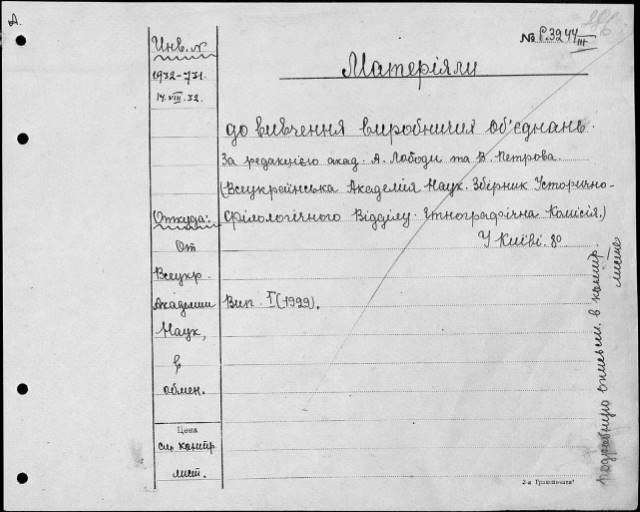 А.
Инв. №
1932-731.
14.VIII.32.
№ Р.3244/III
Матеріяли
до вивчення виробничих об'єднань.
За редакцією акад. А. Лободи та В. Петрова.
(Всеукраїнська Академія Наук. Збірник Історично-
Філологічного Відділу. Етнографічна Комісія.)
У Київі. 8º
Вип. I (1929).
Откуда:
От
Всеукр.
Академии
Наук,
в
обмен.
Цена
см. контр.
лист.
подробную опись см. в контр.
листе